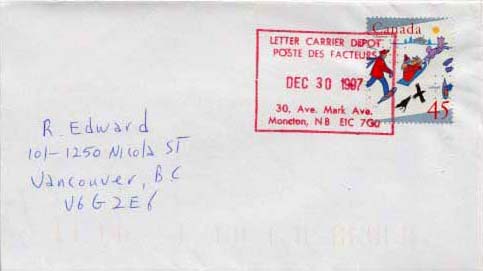 Canada
LETTER CARRIER DEPOT
POSTE DES FACTEURS
DEC 30 1997
30, Ave. Mark Ave.
Moncton, NB E1C 7G0
45
R. Edward
101-1250 Nicola ST
Vancouver, BC
V6G2E6